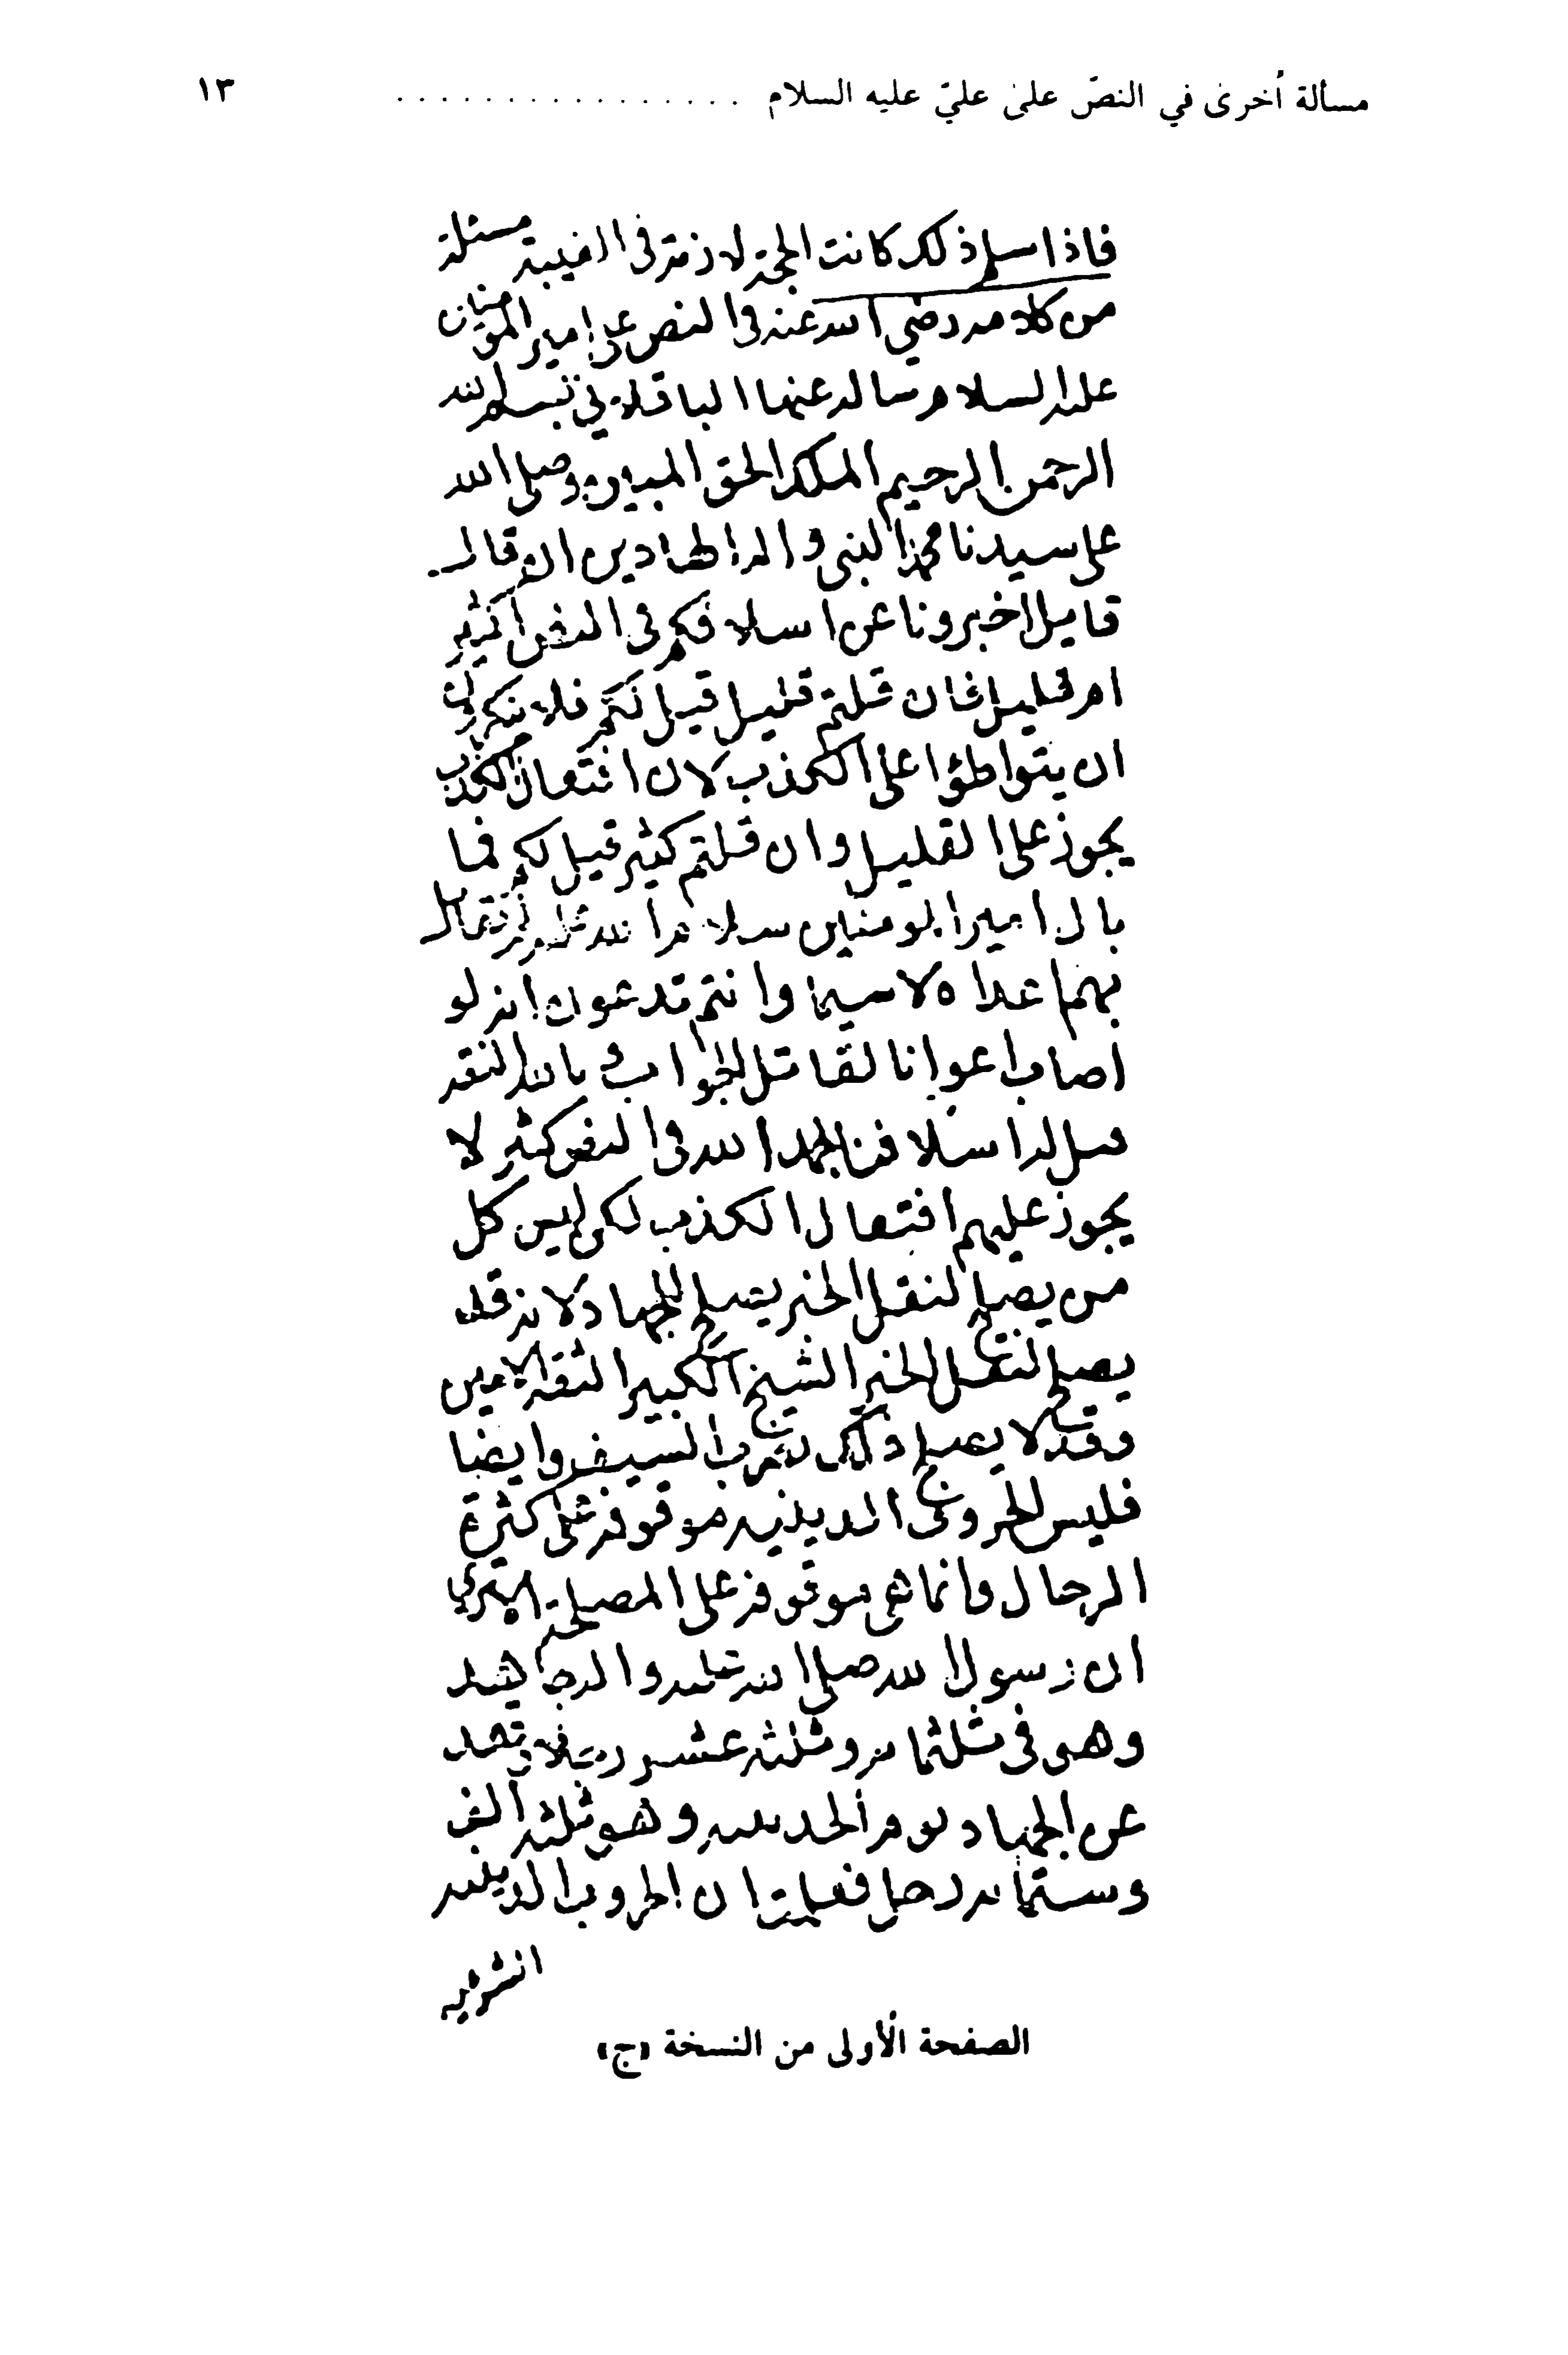 مسألة أخرى في النصّ على عليّ عليه السلام ................ ١٣
فاذا سلم ذلك كانت الحجة لازمة في الغيبة مسئلة
من كلامه رضي الله عنه في النص على امير المؤمنين
عليه السلام وساله عنها الباقلاني بسم الله
الرحمن الرحيم الملك الحق المبين وصلى الله
على سيدنا محمد النبي واله الطاهرين ان قال
قايل اخبرونا عن اسلافكم في النص اكثير
ام قليل فان قلتم قليل قيل لكم فلا ننكر
ان يتواطؤا على الكذب لان افتعال الكذب
يجوز على القليل وان قلتم كثير قيل لكم فما
بال امير المومنين لم يقاتل
بهم اعداه لا سيما وانتم تدعون انه لو
اصاب اعوانا لقاتل الجواب وبالله الثقة
قيل له اسلافنا بحمد الله في النص كثير لا
يجوز عليهم افتعال الكذب لكن ليس كل
من يصلح لنقل الخبر يصلح للجهاد لانه قد
يصلح لنقل الخبر الشيخ الكبير الثقة الامين
وقد لا يصلح ذلك لضرب السيف وايضا
فليس الحروب الدينية موقوفة على كثرة
الرجال وانما هي موقوفة على المصلحة الا ترى
ان رسول الله صلى الله عليه واله جاهد
وهو في ثلثمائة وثلثة عشر رجلا وقعد
عن الجهاد يوم الحديبية وهو في ثلثة الف
وستمائة رجل فعلمنا ان الحروب الدينية
الشرعية
الصفحة الأولى من النسخة «ج»